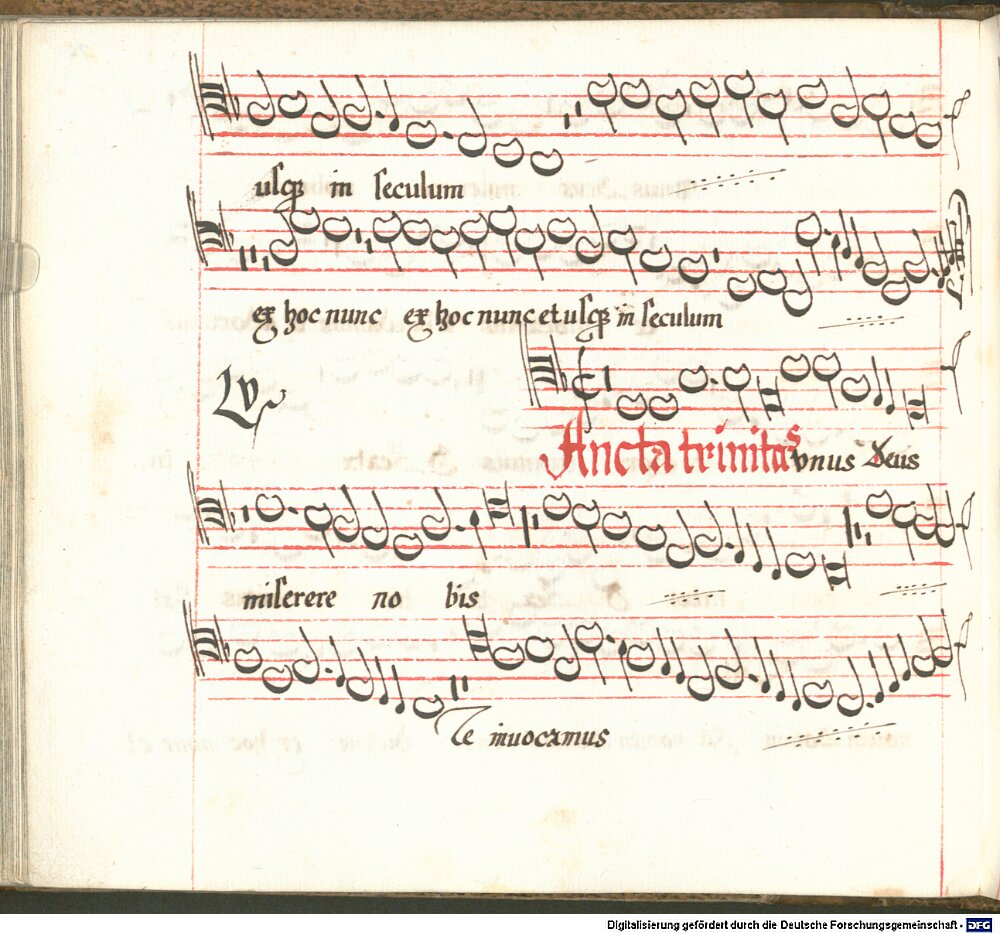 usq in seculum
ex hoc nunc ex hoc nunc et usq in seculum
LV
Ancta trinitas vnus Deus
miserere no bis
Te inuocamus
Digitalisierung gefördert durch die Deutsche Forschungsgemeinschaft - DFG